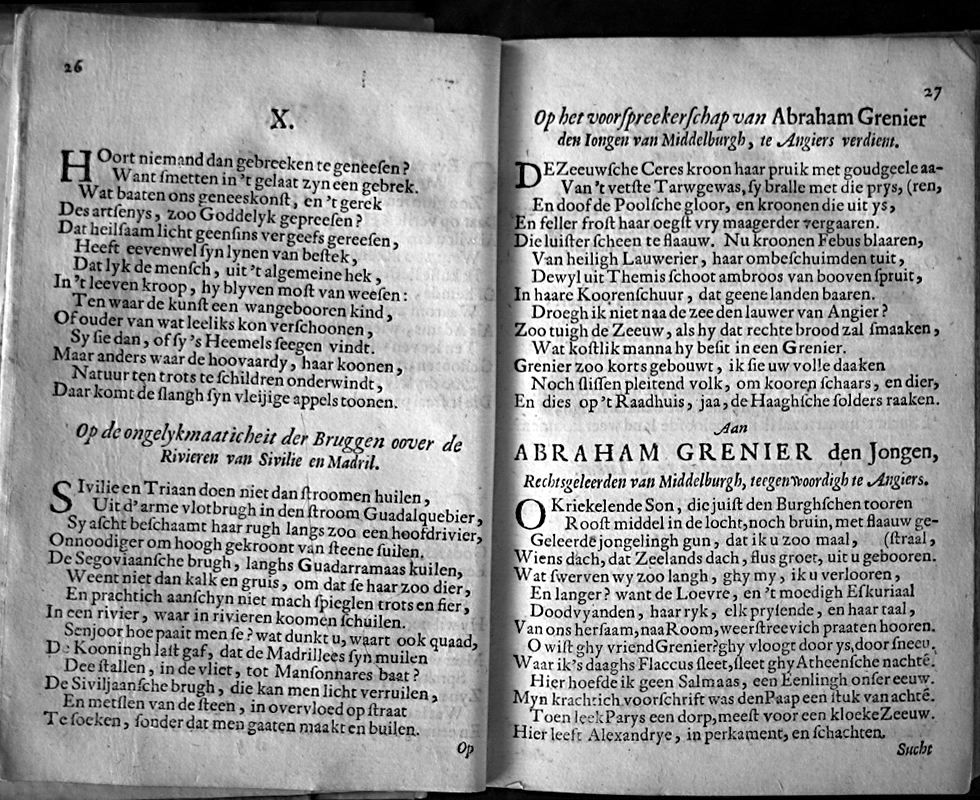 26
X.
HOort niemand dan gebreeken te geneesen?
Want smetten in 't gelaat zyn een gebrek.
Wat baaten ons geneeskonst, en 't gerek
Des artsenys, zoo Goddelyk gepreesen?
Dat heilsaam licht geensins vergeefs gereesen,
Heeft eevenwel syn lynen van bestek,
Dat lyk de mensch, uit 't algemeine hek,
In 't leeven kroop, hy blyven most van weesen:
Ten waar de kunst een wangebooren kind,
Of ouder van wat leeliks kon verschoonen,
Sy sie dan, of sy 's Heemels seegen vindt.
Maar anders waar de hoovaardy, haar koonen,
Natuur ten trots te schildren onderwindt,
Daar komt de slangh syn vleijige appels toonen.
Op de ongelykmaaticheit der Bruggen oover de
Rivieren van Sivilie en Madril.
SIvilie en Triaan doen niet dan stroomen huilen,
Uit d'arme vlotbrugh in den stroom Guadalquebier,
Sy ascht beschaamt haar rugh langs zoo een hoofdrivier,
Onnoodiger om hoogh gekroont van steene suilen.
De Segoviaansche brugh, langhs Guadarramaas kuilen,
Weent niet dan kalk en gruis, om dat se haar zoo dier,
En prachtich aanschyn niet mach spieglen trots en fier,
In een rivier, waar in rivieren koomen schuilen.
Senjoor hoe paait men se? wat dunkt u, waart ook quaad,
De Kooningh last gaf, dat de Madrillees syn muilen
Dee stallen, in de vliet, tot Mansonnares baat?
De Siviljaansche brugh, die kan men licht verruilen,
En metslen van de steen, in overvloed op straat
Te soeken, sonder dat men gaaten maakt en builen.
Op
27
Op het voorspreekerschap van Abraham Grenier
den Iongen van Middelburgh, te Angiers verdient.
DE Zeeuwsche Ceres kroon haar pruik met goudgeele aa-
Van 't vetste Tarwgewas, sy bralle met die prys, (ren,
En doof de Poolsche gloor, en kroonen die uit ys,
En feller frost haar oegst vry maagerder vergaaren.
Die luister scheen te flaauw. Nu kroonen Febus blaaren,
Van heiligh Lauwerier, haar ombeschuimden tuit,
Dewyl uit Themis schoot ambroos van booven spruit,
In haare Koorenschuur, dat geene landen baaren.
Droegh ik niet naa de zee den lauwer van Angier?
Zoo tuigh de Zeeuw, als hy dat rechte brood zal smaaken,
Wat kostlik manna hy besit in een Grenier.
Grenier zoo korts gebouwt, ik sie uw volle daaken
Noch slissen pleitend volk, om kooren schaars, en dier,
En dies op 't Raadhuis, jaa, de Haaghsche solders raaken.
Aan
ABRAHAM GRENIER den Jongen,
Rechtsgeleerden van Middelburgh, teegenwoordigh te Angiers.
O Kriekelende Son, die juist den Burghschen tooren
Roost middel in de locht, noch bruin, met flaauw ge-
Geleerde jongelingh gun, dat ik u zoo maal, (straal,
Wiens dach, dat Zeelands dach, flus groet, uit u gebooren.
Wat swerven wy zoo langh, ghy my, ik u verlooren,
En langer? want de Loevre, en 't moedigh Eskuriaal
Doodvyanden, haar ryk, elk prysende, en haar taal,
Van ons hersaam, naa Room, weerstreevich praaten hooren.
O wist ghy vriend Grenier? ghy vloogt door ys, door sneeu.
Waar ik 's daaghs Flaccus sleet, sleet ghy Atheensche nachtē.
Hier hoefde ik geen Salmaas, een Eenlingh onser eeuw.
Myn krachtich voorschrift was den Paap een stuk van achtē.
Toen leek Parys een dorp, meest voor een kloeke Zeeuw.
Hier leeft Alexandrye, in perkament, en schachten.
Sucht